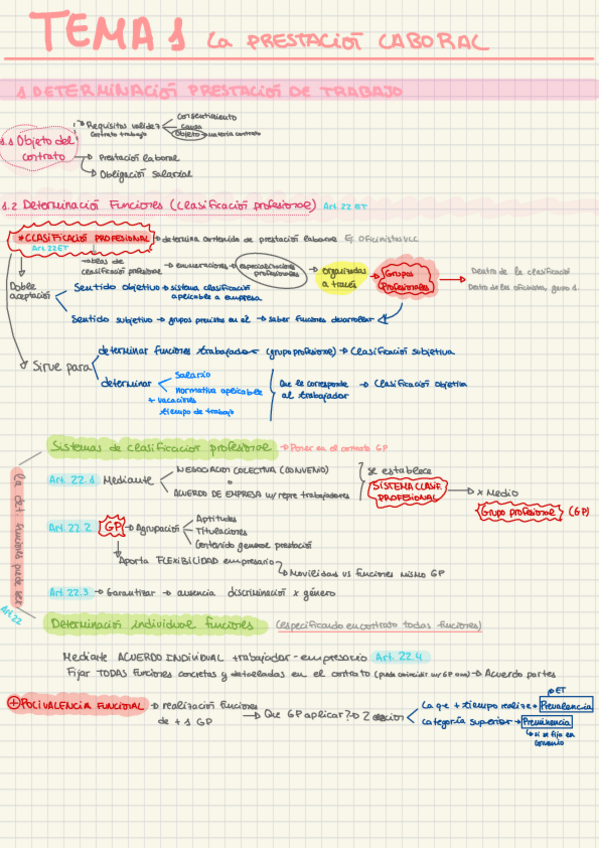 TEMA 1 LA PRESTACIÓN LABORAL
1 DETERMINACIÓN PRESTACIÓN DE TRABAJO
1.1 Objeto del contrato
Requisitos validez contrato trabajo
consentimiento
causa
Objeto → materia contrato
→ Prestación laboral
→ Obligación salarial
1.2 Determinación Funciones (Clasificación profesional) Art. 22 ET
* CLASIFICACIÓN PROFESIONAL → determina contenido de prestación laboral
Art. 22 ET
clasificación profesional → enumeraciones → especializaciones profesionales → organizadas a través → Grupos Profesionales
→ Dentro de la clasificación
Dentro de los oficinistas, grupo 1.
Doble aceptación
Sentido objetivo → sistema clasificación aplicable a empresa
Sentido subjetivo → grupos previstos en él → saber funciones desarrollar
Sirve para
determinar funciones trabajador (grupo profesional) → Clasificación subjetiva
determinar
Salario
Normativa aplicable
+ vacaciones
tiempo de trabajo
Que le corresponde al trabajador → Clasificación objetiva
la det. funciones puede ser
Art. 22
Sistemas de clasificación profesional → Poner en el contrato GP
Art. 22.1 Mediante
NEGOCIACIÓN COLECTIVA (CONVENIO)
o
ACUERDO DE EMPRESA w/ repre trabajadores
se establece
SISTEMA CLASIF. PROFESIONAL → x Medio
Grupo profesional (GP)
Art. 22.2 GP → Agrupación
Aptitudes
Titulaciones
Contenido general prestación
Aporta FLEXIBILIDAD empresario
→ Movilidad vs funciones mismo GP
Art. 22.3 → Garantizar → ausencia discriminación x género
Determinación individual funciones (especificando en contrato todas funciones)
Mediante ACUERDO INDIVIDUAL trabajador - empresario Art. 22.4
Fijar TODAS funciones concretas y detalladas en el contrato (puede coincidir w/ GP o no) → Acuerdo partes
+ POLIVALENCIA FUNCIONAL → realización funciones de + 1 GP → Que GP aplicar? → 2
La que + tiempo realiza → Prevalencia
→ ET
categoría superior → Preminencia
→ si se fijo en convenio